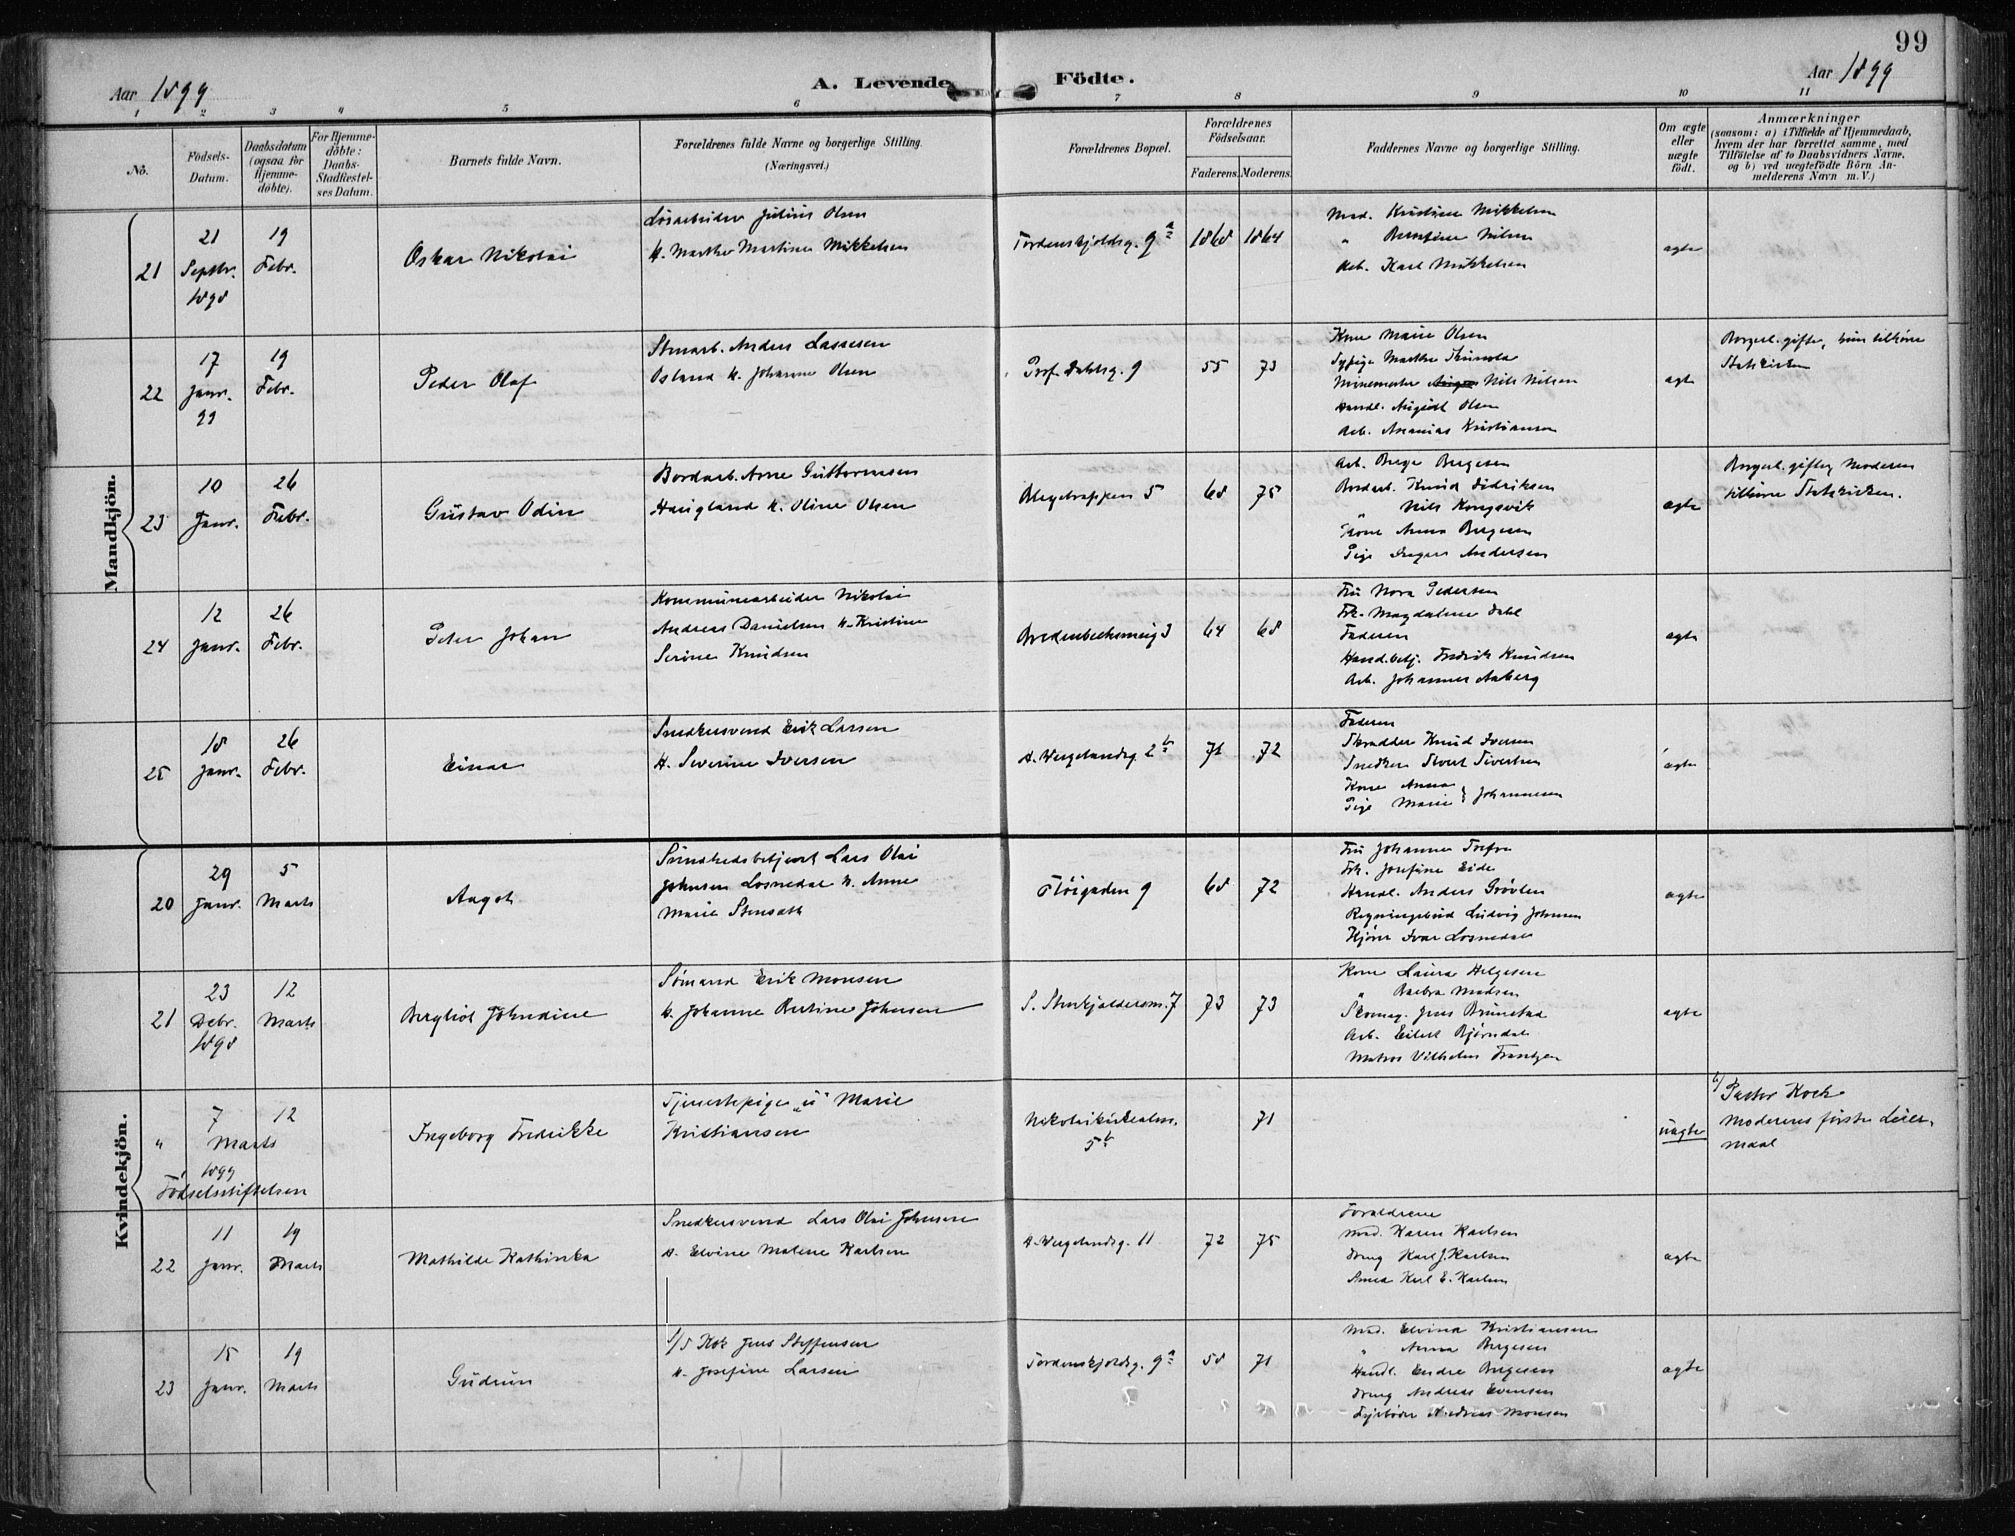 99
Aar 1899
A. Levende Födte.
Aar 1899
1 2 3 4 5 6 7 8 9 10 11
No.
Födsels-Datum.
Daabsdatum (ogsaa for Hjemme-döbte).
For Hjemme-döbte: Daabs-Stadfæstel-ses Datum.
Barnets fulde Navn.
Forældrenes fulde Navne og borgerlige Stilling. (Næringsvei.)
Forældrenes Bopæl.
Forældrenes Födselsaar.
Faderens. Moderens.
Faddernes Navne og borgerlige Stilling.
Om ægte eller uægte født.
Anmærkninger
(saasom: a) i Tilfælde af Hjemmedaab,
hvem der har forrettet samme, med
Tilföielse af to Daabsvidners Navne,
og b) ved uægtefödte Börn An-
melderens Navn m. V.)
Mandkjön.
21
21 Septbr. 1898
19 Febr.
Oskar Nikolai
Løsarbeider Julius Olsen
H. Marthe Martine Mikkelsen
Tordenskjoldsg. 9 a
1868 1864
Mad. Kristine Mikkelsen
" Berntine Nilsen
Arb. Karl Mikkelsen
ægte
22
17 Janr. 99
19 Febr.
Peder Olaf
Stenarb. Anders Lassesen
Osland H. Johanne Olsen
Prof. Dahlsg. 9
55 73
Kone Marie Olsen
Sypige Marthe
Minemester Nils Nilsen
Handl. August Olsen
Arb. Ananias Kristiansen
ægte
Borgerl. gifte, hun tilhører
Statskirken
23
10 Janr.
26 Febr.
Gustav Odin
Bordarb. Arne Guttormsen
Haugland H. Oline Olsen
Blegetrappen 5
68 75
Arb. Berge Bergesen
Bordarb. Knud Didriksen
" Nils Kongsvik
Kone Anna Bergesen
Pige Inger Andersen
ægte
Borgerl. gifte, Moderen
tilhører Statskirken.
24
12 Janr.
26 Febr.
Peter Johan
Kommunearbeider Nikolai
Andreas Danielsen H. Kristine
Serine Knudsen
Bredenbecksmug 3
64 68
Fru Nora Pedersen
Frk. Magdalene Dahl
Faderen
Hand.betj. Fredrik Knudsen
Arb. Johannes Aaberg
ægte
25
18 Janr.
26 Febr.
Einar
Snedkersvend Erik Larsen
H. Severine Iversen
H. Wergelandsg. 2 b
71 72
Faderen
Skrædder Knud Iversen
Snedker Sivert Sivertsen
Kone Anna
Pige Marie } Johannesen
ægte
Kvindekjön.
20
29 Janr.
5 Marts
Aagot
Sundhedsbetjent Lars Olai
Johnsen Losnedal H. Anne
Marie Stensæth
Fløigaden 9
68 72
Fru Johanne
Frk. Josefine Eide
Handl. Anders Grøvlen
Regningsbud Ludvig Johnsen
Kjører Ivar Losnedal
ægte
21
23 Debr. 1898
12 Marts
Bergliot Johndine
Sømand Erik Monsen
H. Johanne Bertine Johnsen
S. Stenkjeldersm. 7
73 73
Kone Laura Helgesen
" Barbra Madsen
Skomag. Jens Brunstad
Arb. Eilert Bjørndal
Matros Vilhelm Frantzen
ægte
"
7 Marts 1899
12
Fødselsstiftelsen
Ingeborg Fredrikke
Tjenestepige "u" Marie
Kristiansen
Nikolaikirkealm. 5 b
71
uægte
b/ Pastor Koch
Moderens første Leier-
maal
22
11 Janr.
19 Marts
Mathilde Kathinka
Snedkersvend Lars Olai Johnsen
H. Elvine Malene Karlsen
H. Wergelandsg. 11
72 75
Forældrene
Mad. Karen Karlsen
Dreng Karl J. Karlsen
Karl E. Karlsen
ægte
23
15 Janr.
19 Marts
Gudrun
S/S Kok Jens Steffensen
H. Josefine Larsen
Tordenskjoldsg. 9 a
58 71
Mad. Elvina Kristiansen
" Anna Bergesen
Handl. Endre Bergesen
Dreng Andreas Evensen
Fyrbøder Andreas Monsen
ægte